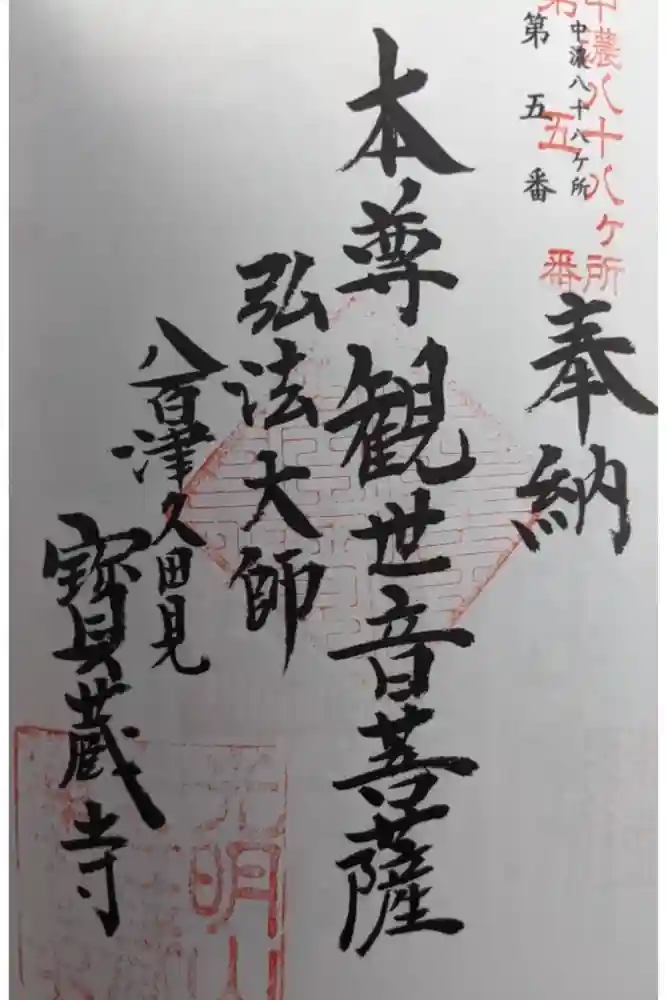 中濃八十八ケ所
第五番
中濃八十八ヶ所
第五番
奉納
本尊観世音菩薩
弘法大師
八百津久田見
寳蔵寺
光明山